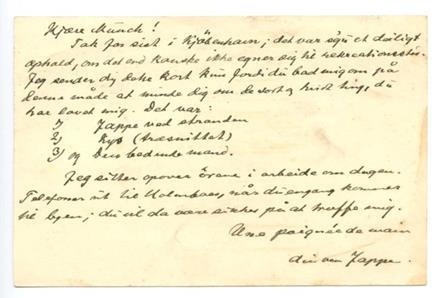 Kjære Munch!
Tak for sist i Kjøbenhavn; det var sgu et deiligt
ophold, om det end kanske ikke egner sig til rekreationssted.
Jeg sender dig dette kort kun fordi du bad mig om på
denne måde at minde dig om de sort og hvidt ting, du
har lovet mig. Det var:
1) Jappe ved stranden
2) Kys (træsnittet)
3) og Den bedende mand.
Jeg sitter opover ørene i arbeide om dagen.
Telefoner ut til Holmboes, når du engang kommer
til byen; du vil da være sikker på at træffe mig.
Une poignée de main
din ven Jappe.